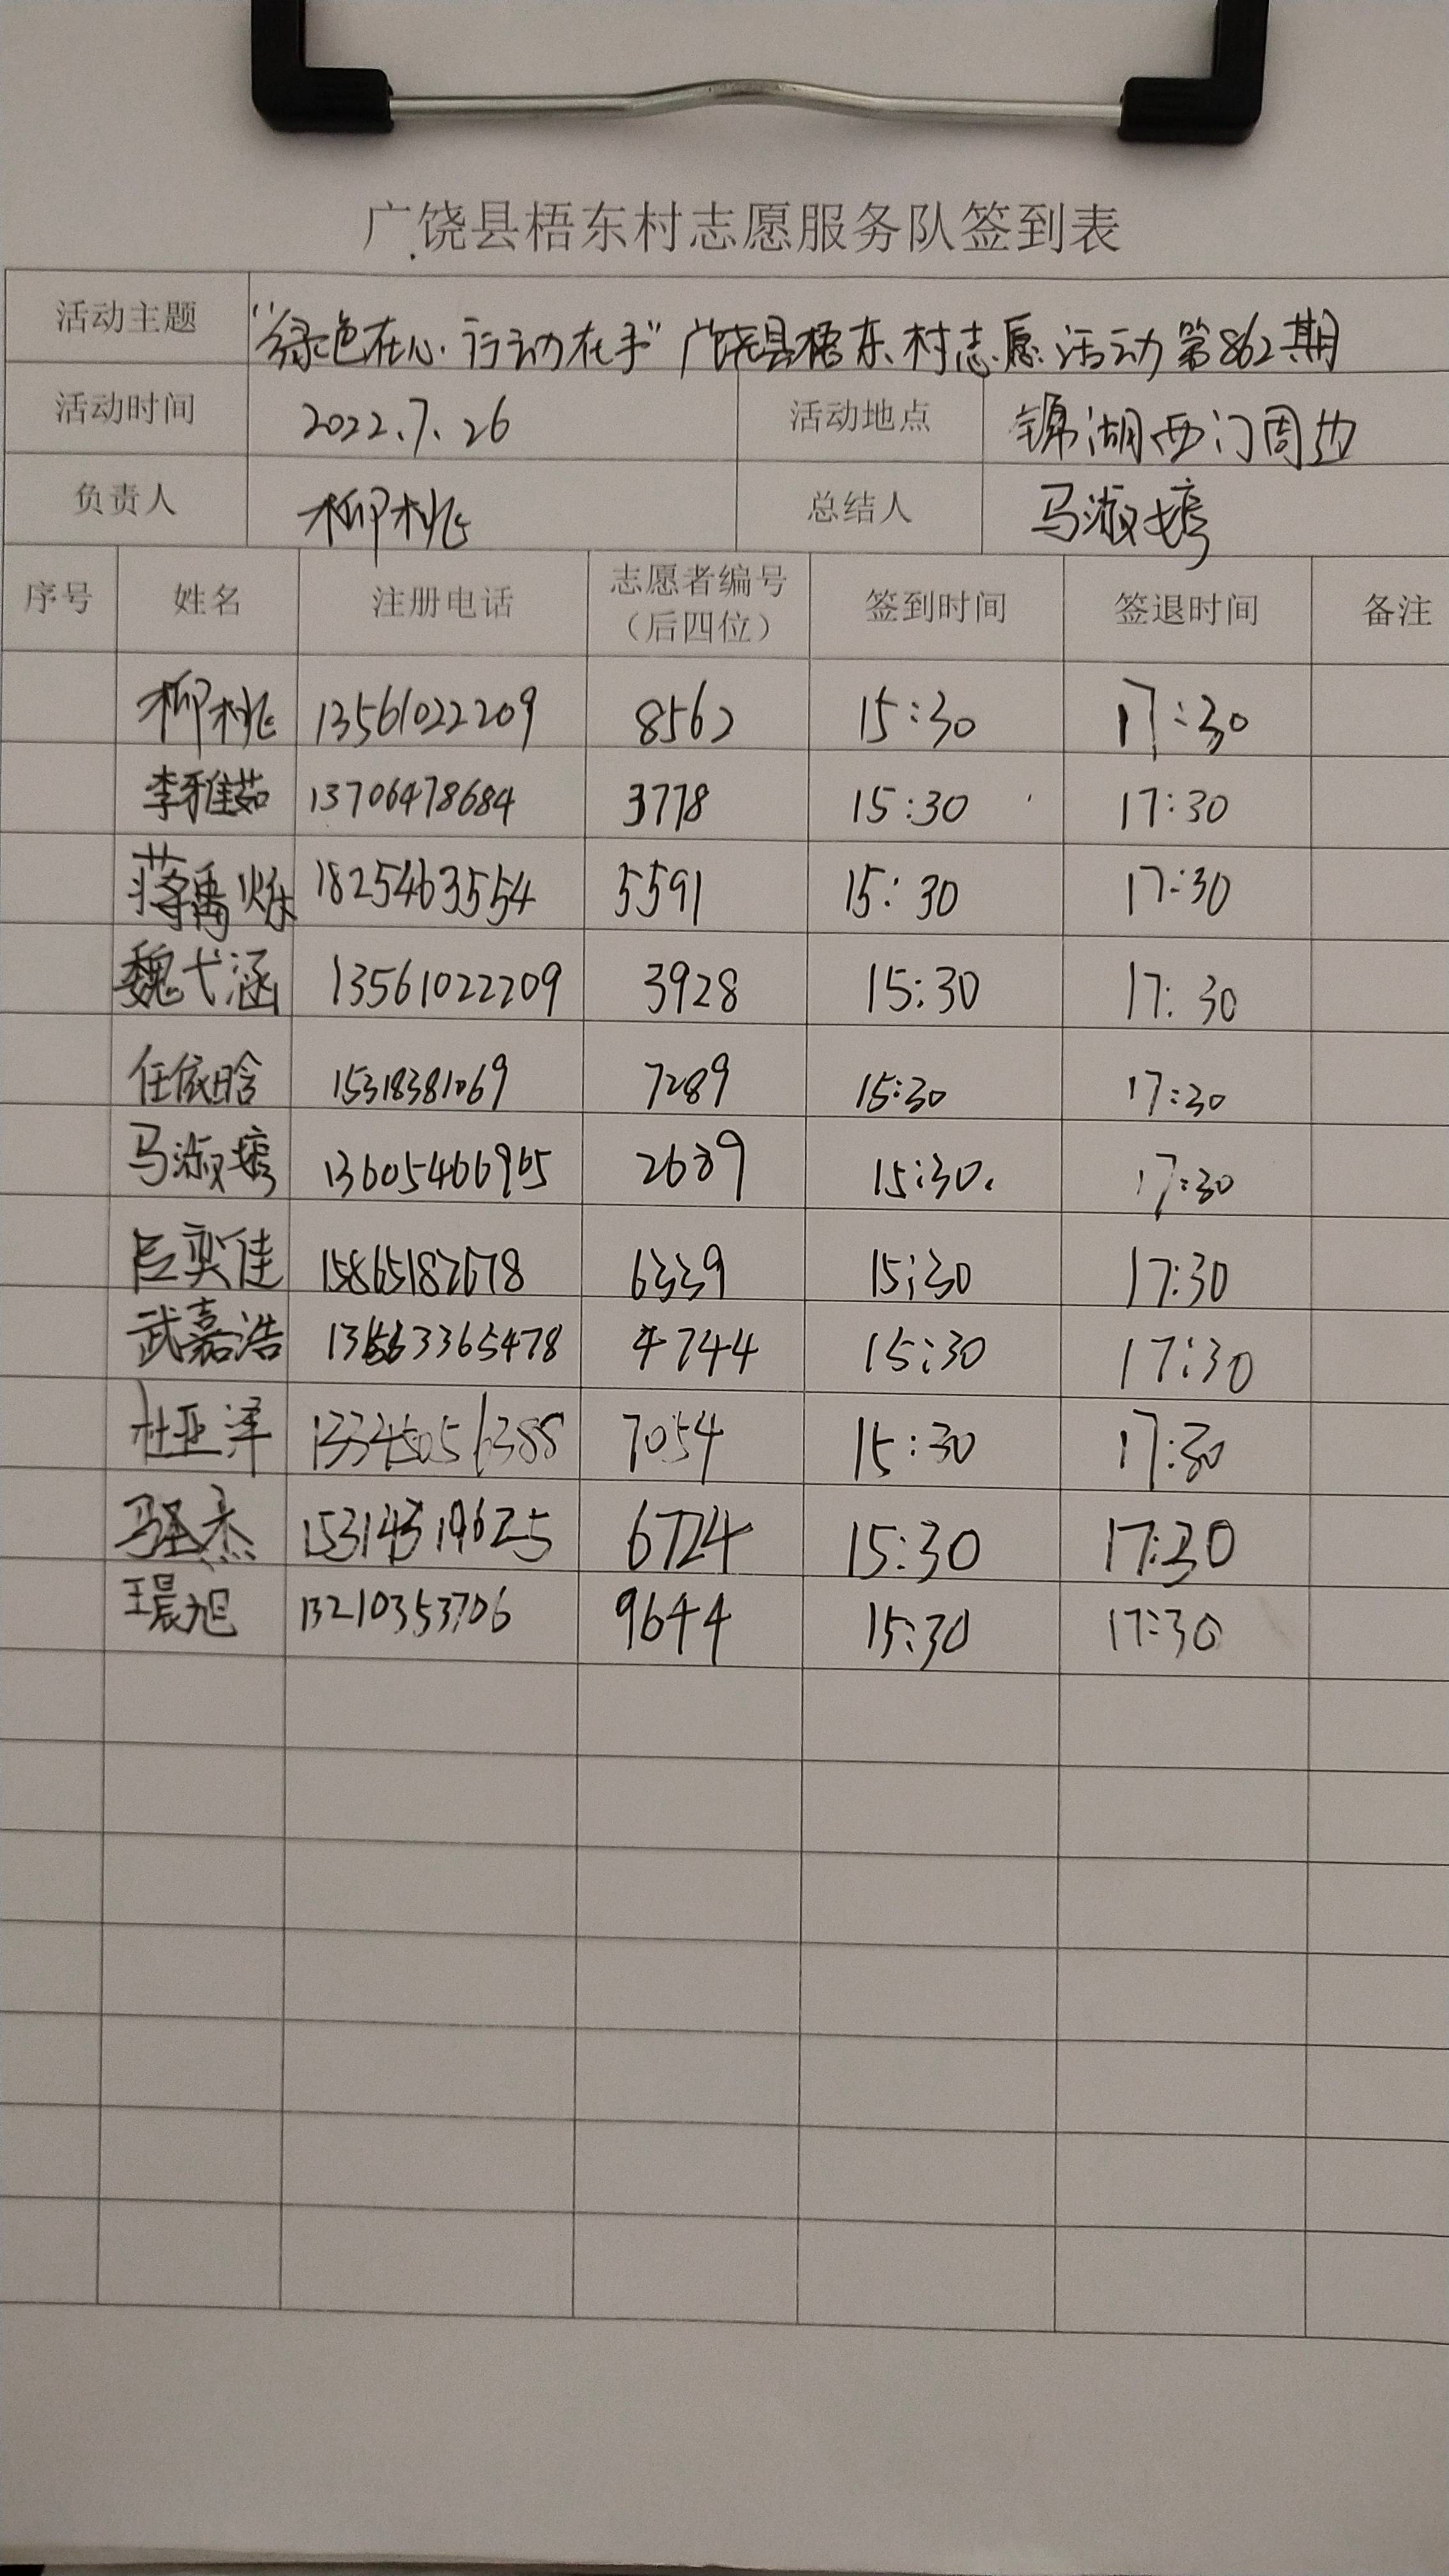 广饶县梧东村志愿服务队签到表
活动主题 “绿色在心·行动在手”广饶县梧东村志愿活动第862期
活动时间 2022.7.26 活动地点 锦湖西门周边
负责人 柳桃 总结人 马淑娉
序号 姓名 注册电话 志愿者编号（后四位） 签到时间 签退时间 备注
柳桃 13561022209 8562 15:30 17:30
李雅茹 13706478684 3778 15:30 17:30
蒋禹烁 18254635554 5591 15:30 17:30
魏弋涵 13561022209 3928 15:30 17:30
任依晗 15318381069 7289 15:30 17:30
马淑娉 13605466965 2689 15:30. 17:30
奕佳 15865182678 6339 15:30 17:30
武嘉浩 4744 15:30 17:30
杜亚泽 7054 15:30 17:30
马圣杰 6724 15:30 17:30
王晨旭 13210353706 9644 15:30 17:30